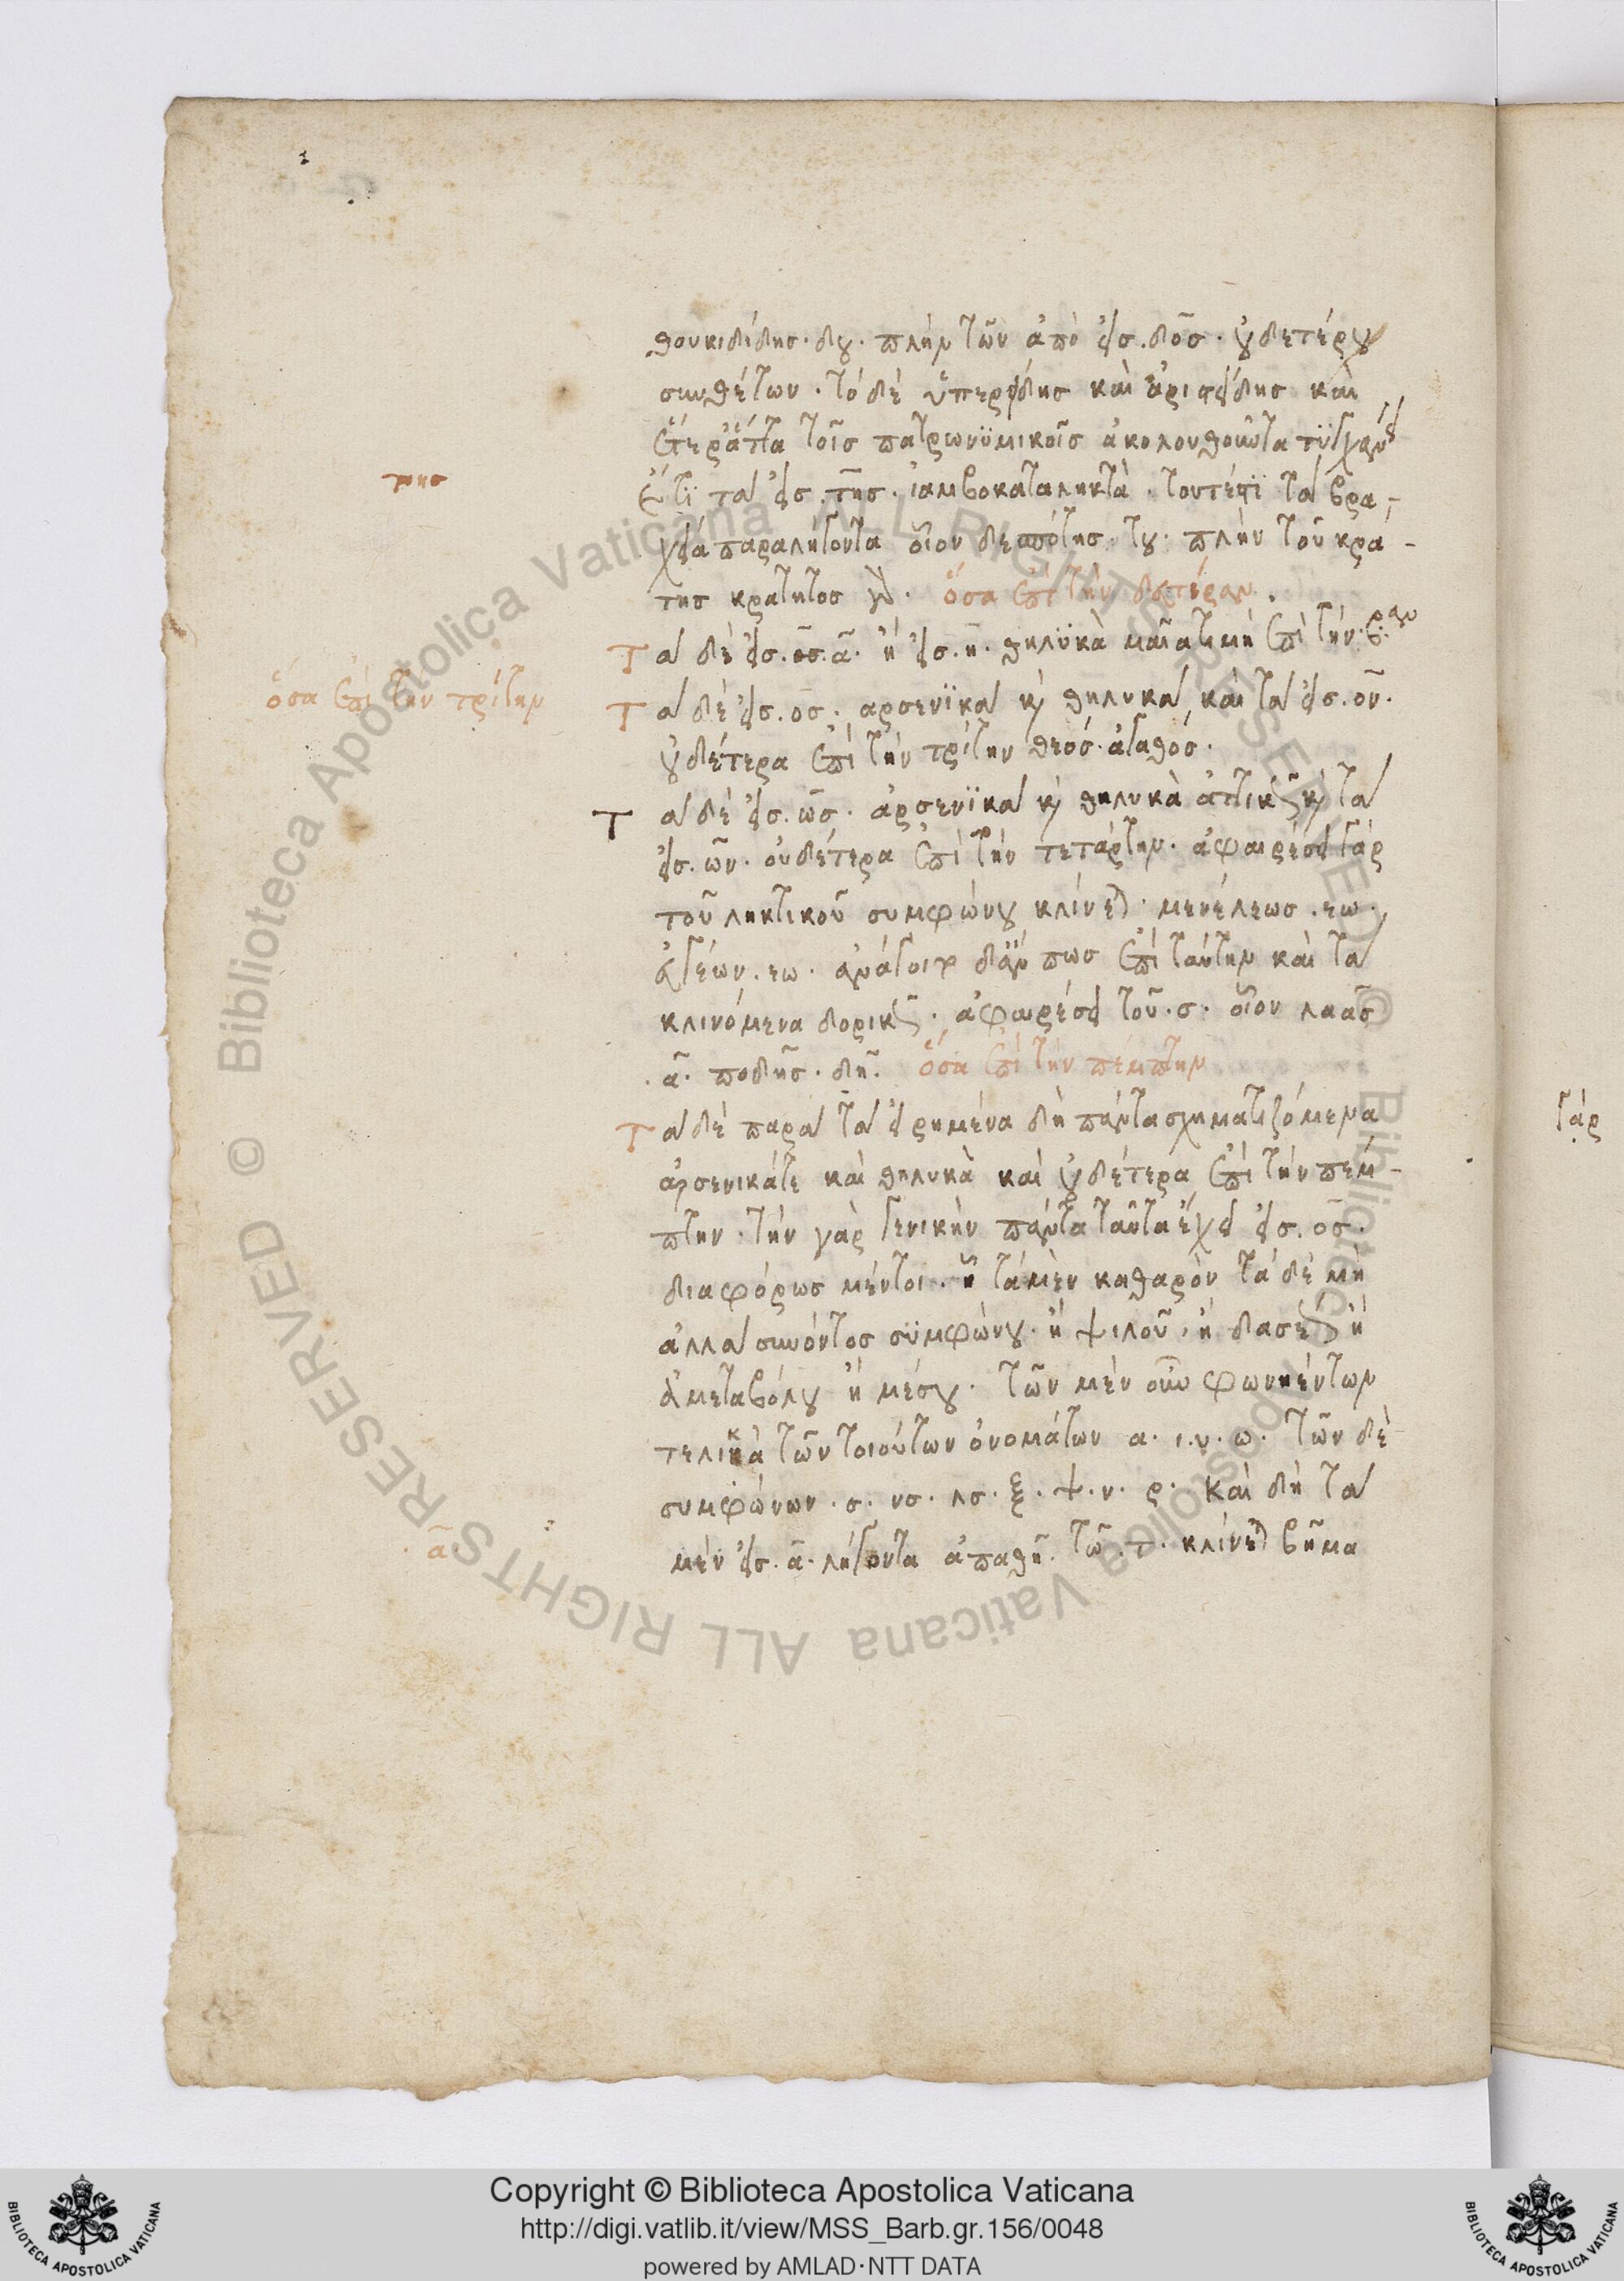 θουκιδίδησ. δου. πλὴν τῶν ἀπὸ εἰσ. δοσ. οὐδετέρου
συνθέτων. τὸ δὲ ὑπερείδησ καὶ ἀριστείδησ καὶ
ἕτερ' ἄττα τοῖσ πατρωνϋμικοῖσ ἀκολουθοῦντα τϋγχάνει
τησ
ἔτϊ τὰ εἰσ. τησ. ἰαμβοκατάληκτὰ. τουτέστϊ τὰ βρα-
χεία παραλήγοντα οἷον δεσπότησ. του. πλὴν τοῦ κρά-
τησ κράτητοσ ὅσα ἐπὶ τὴν δευτέραν.
Τὰ δὲ εἰσ. οσ. ᾱ. ἢ εἰσ. η. θηλϋκὰ ἐπὶ τὴν β.ραν
ὅσα ἐπὶ τὴν τρίτην
Τὰ δὲ εἰσ. οσ. ἀρσενϊκὰ κ̀ θηλυκὰ καὶ τὰ εἰσ. ον.
οὐδέτερα ἐπὶ τὴν τρίτην θεόσ. ἀγαθόσ.
Τὰ δὲ εἰσ. ωσ. ἀρσενϊκὰ κ̀ θηλυκὰ ἀττικῶσ κ̀ τὰ
εἰσ. ων. οὐδέτερα ἐπὶ τὴν τετάρτην. ἀφαιρέσει γάρ
τοῦ ληκτικοῦ συμφώνου κλίνεται. μενέλεωσ. εω.
εω. δ' ἄν πωσ ἐπὶ ταύτην καὶ τὰ
κλινόμενα δορικῶσ. ἀφαιρέσει τοῦ. σ. οἷον λαᾶσ
. ᾶ. ποδῆσ. δῆ. ὅσα ἐπὶ τὴν πέμπτην
Τὰ δὲ παρὰ τὰ εἰρημένα δὴ πάντα σχηματιζόμενα
ἀρσενικά τε καὶ θηλυκὰ καὶ οὐδέτερα ἐπὶ τὴν πέμ-
πτην. τὴν γὰρ γενικὴν πάντα ταῦτα ἔχει εἰσ. οσ.
διαφόρωσ μέντοι. ἢ τὰ μὲν καθαρὸν τὰ δὲ μὴ
ἀλλὰ συνόντοσ σϋμφώνου. ἢ ψιλοῦ, ἢ δασέοσ ἢ
ἀμεταβόλου ἢ μέσου. τῶν μὲν οὖν φωνηέντων
τελικὰ τῶν τοιούτων ὀνομάτων α. ι. υ. ω. τῶν δὲ
συμφώνων. σ. νσ. λσ. ξ. ψ. ν. ρ. καὶ δὴ τὰ
ᾱ
μὲν εἰσ. ᾱ. λήγοντα ἁπαθῆ. τῶ. τ. κλίνεται βῆμα
γάρ
Copyright © Biblioteca Apostolica Vaticana
http://digi.vatlib.it/view/MSS_Barb.gr.156/0048
powered by AMLAD·NTT DATA